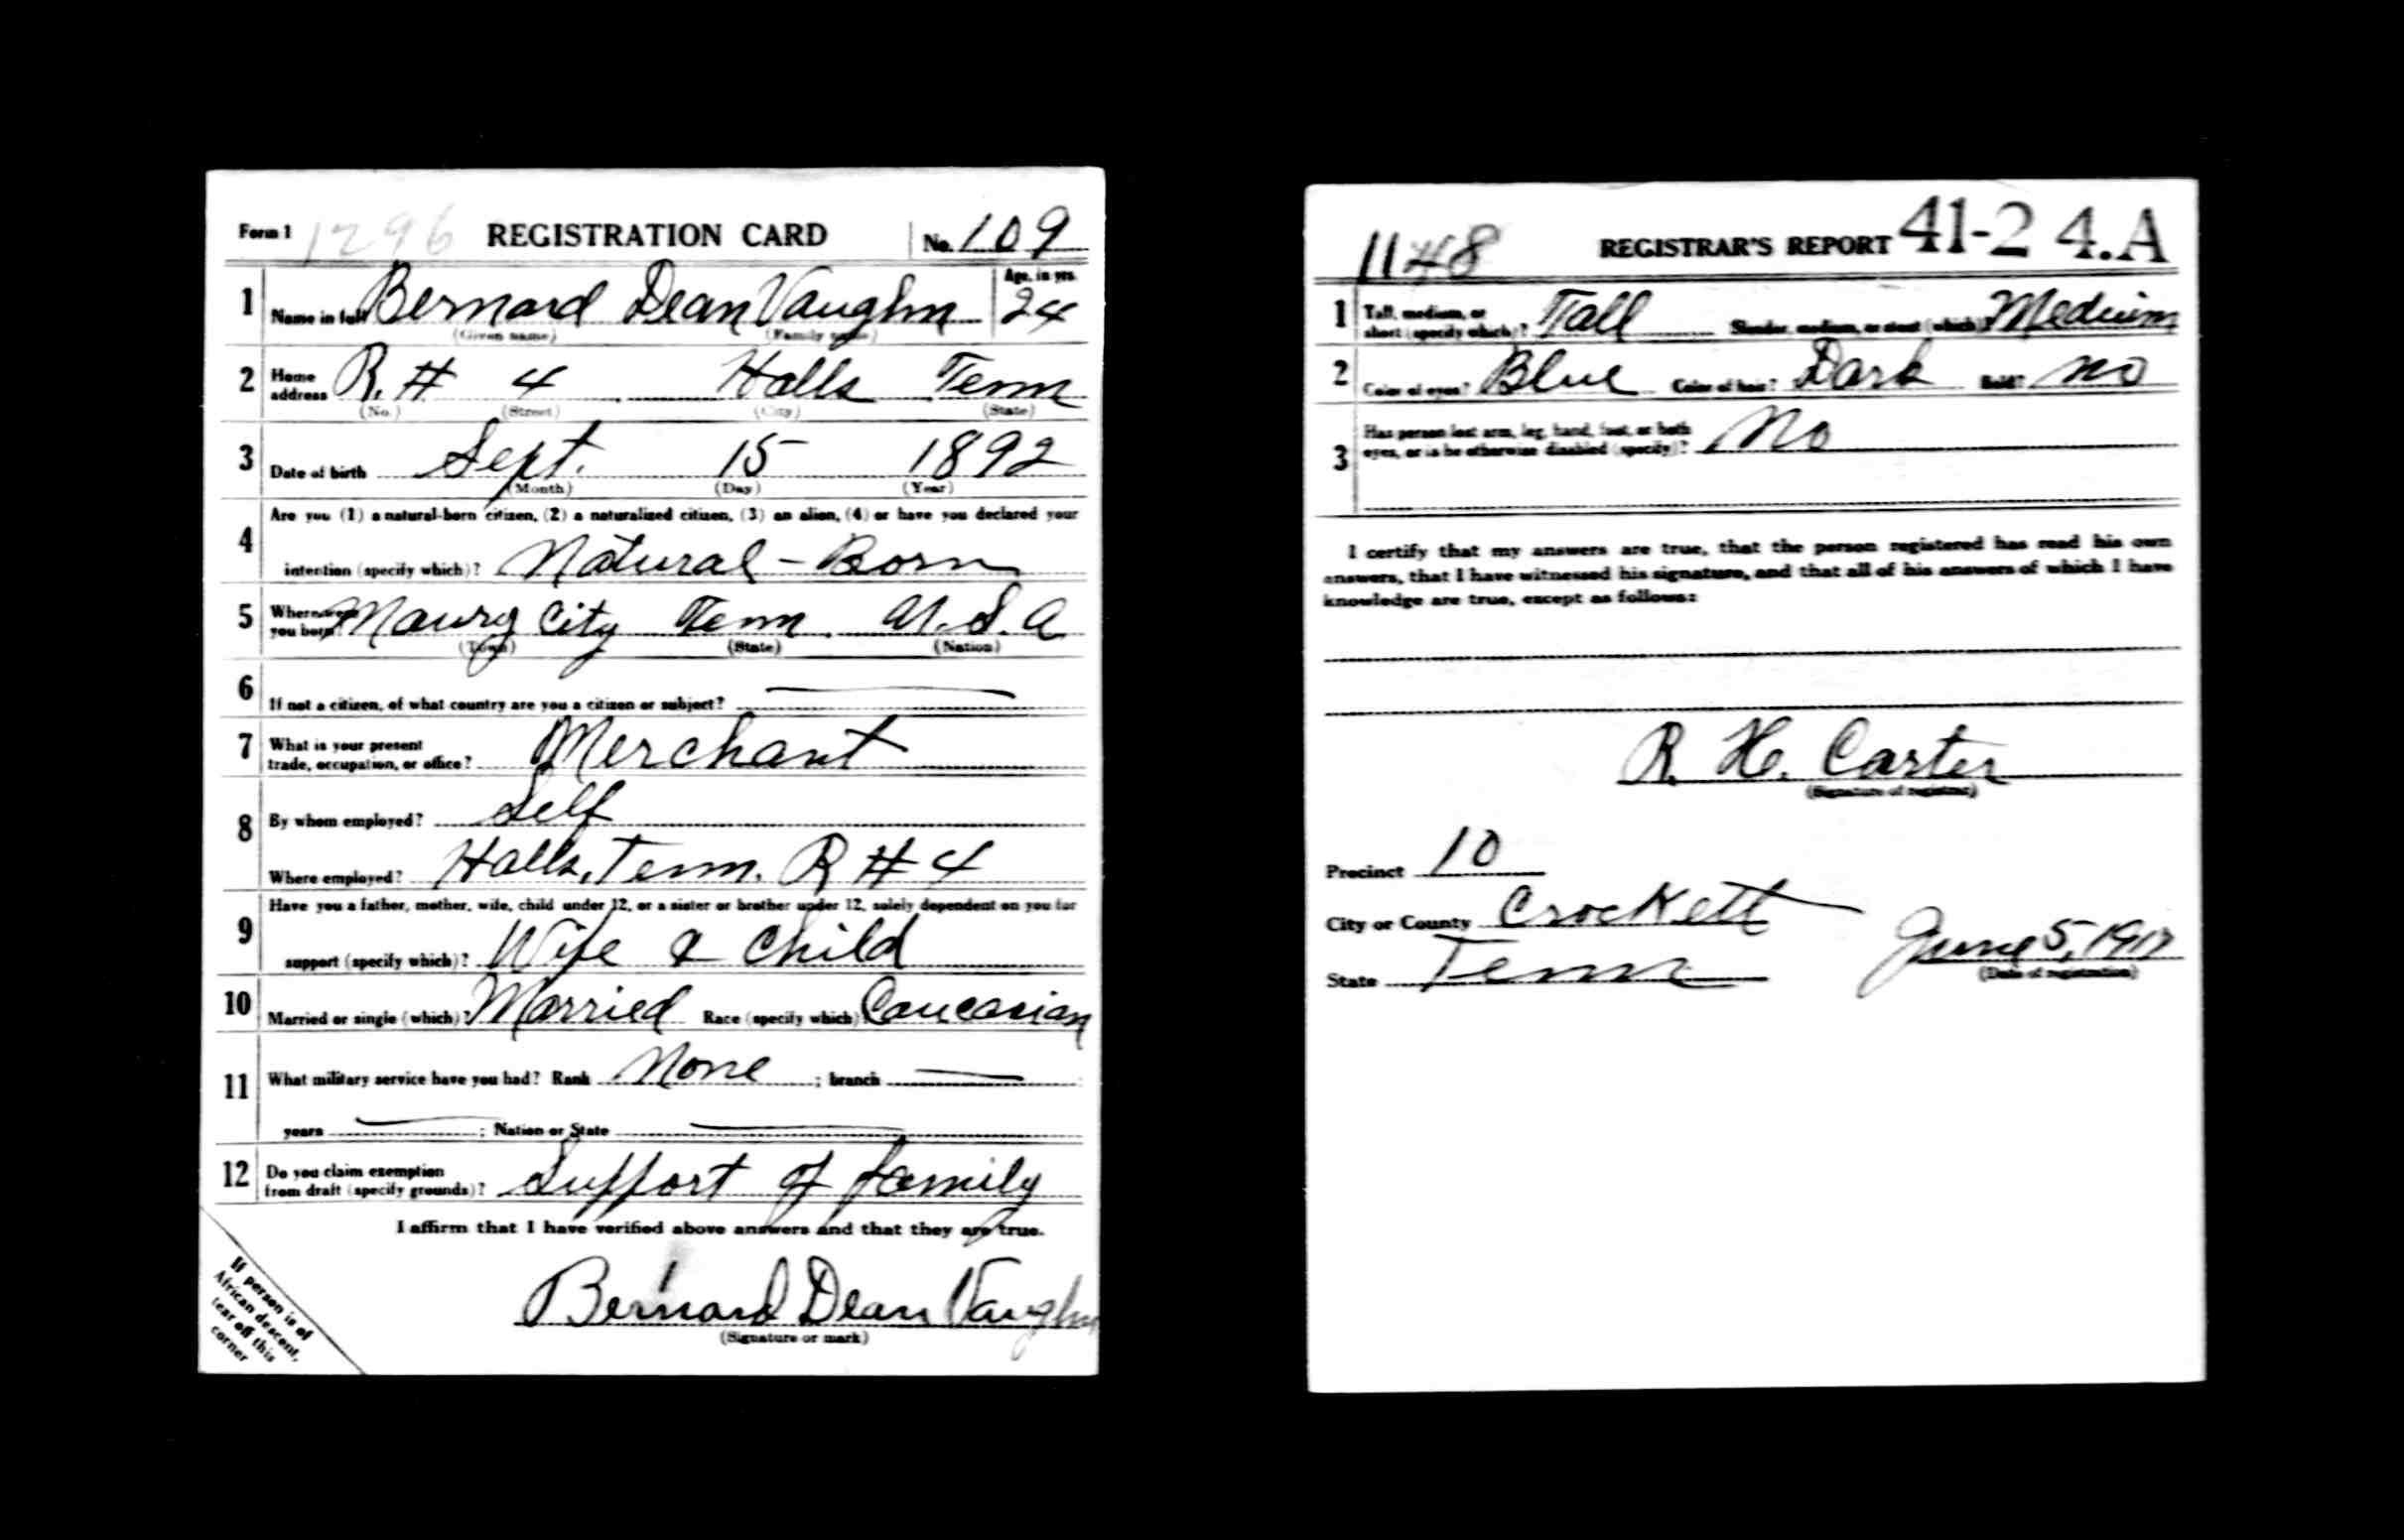 Form 1 1296 REGISTRATION CARD No. 109
1 Name in full Bernard Dean Vaughn Age, in yrs. 24
(Given name) (Family name)
2 Home address R. # 4 Halls Tenn
(No.) (Street) (City) (State)
3 Date of birth Sept. 15 1892
(Month) (Day) (Year)
4 Are you (1) a natural-born citizen, (2) a naturalized citizen, (3) an alien, (4) or have you declared your
intention (specify which)? Natural-Born
5 Where were you born? Maury City Tenn. U.S.A
(Town) (State) (Nation)
6 If not a citizen, of what country are you a citizen or subject?
7 What is your present
trade, occupation, or office? Merchant
8 By whom employed? Self
Where employed? Halls, Tenn. R # 4
9 Have you a father, mother, wife, child under 12, or a sister or brother under 12, solely dependent on you for
support (specify which)? Wife & Child
10 Married or single (which)? Married Race (specify which) Caucasian
11 What military service have you had? Rank None ; branch
years ; Nation or State
12 Do you claim exemption
from draft (specify grounds)? Support of family
I affirm that I have verified above answers and that they are true.
Bernard Dean Vaughn
(Signature or mark)
If person is of
African descent,
tear off this
corner
1148 REGISTRAR'S REPORT 41-2 4.A
1 Tall, medium, or
short (specify which)? Tall Slender, medium, or stout (which)? Medium
2 Color of eyes? Blue Color of hair? Dark Bald? no
3 Has person lost arm, leg, hand, foot, or both
eyes, or is he otherwise disabled (specify)? No
I certify that my answers are true, that the person registered has read his own
answers, that I have witnessed his signature, and that all of his answers of which I have
knowledge are true, except as follows:
R. H. Carter
(Signature of registrar)
Precinct 10
City or County Crockett
State Tenn June 5, 1917
(Date of registration)